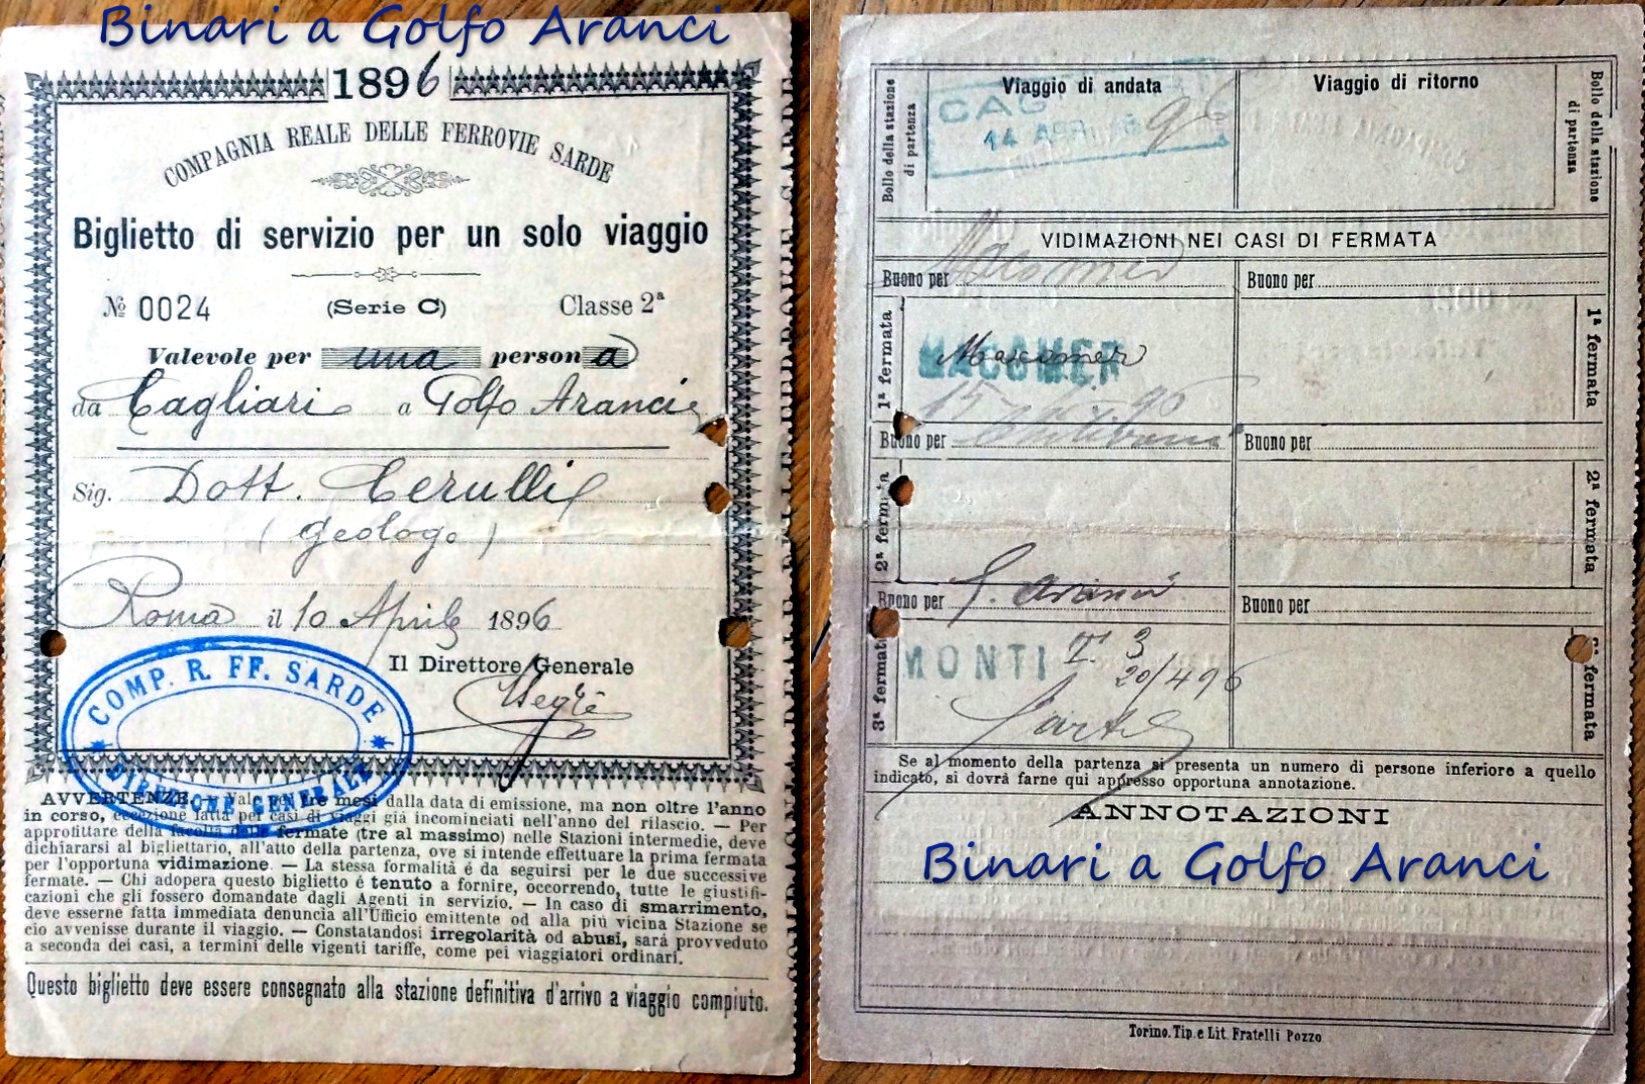 Binari a Golfo Aranci
1896
COMPAGNIA REALE DELLE FERROVIE SARDE
Biglietto di servizio per un solo viaggio
№ 0024 (Serie C) Classe 2ª
Valevole per una persona
da Cagliari a Golfo Aranci
Sig. Dott. Cerulli
(geologo)
Roma il 10 Aprile 1896
Il Direttore Generale
COMP. R. FF. SARDE
DIREZIONE GENERALE
AVVERTENZE. — Vale per tre mesi dalla data di emissione, ma non oltre l'anno
in corso, eccezione fatta per casi di viaggi già incominciati nell'anno del rilascio. — Per
approfittare della facoltà delle fermate (tre al massimo) nelle Stazioni intermedie, deve
dichiararsi al bigliettario, all'atto della partenza, ove si intende effettuare la prima fermata
per l'opportuna vidimazione. — La stessa formalità é da seguirsi per le due successive
fermate. — Chi adopera questo biglietto é tenuto a fornire, occorrendo, tutte le giustifi-
cazioni che gli fossero domandate dagli Agenti in servizio. — In caso di smarrimento,
deve esserne fatta immediata denuncia all'Ufficio emittente od alla più vicina Stazione se
cio avvenisse durante il viaggio. — Constatandosi irregolarità od abusi, sarà provveduto
a seconda dei casi, a termini delle vigenti tariffe, come pei viaggiatori ordinari.
Questo biglietto deve essere consegnato alla stazione definitiva d'arrivo a viaggio compiuto.
Bollo della stazione
di partenza
Viaggio di andata
CAG
14 APR 96
Viaggio di ritorno
Bollo della stazione
di partenza
VIDIMAZIONI NEI CASI DI FERMATA
Buono per Macomer
Buono per
1ª fermata
MACOMER
Macomer
15 96
1ª fermata
Buono per
Buono per
2ª fermata
2ª fermata
Buono per G. Aranci
Buono per
3ª fermata
MONTI T. 3
20/4 96
3ª fermata
Se al momento della partenza si presenta un numero di persone inferiore a quello
indicato, si dovrà farne qui appresso opportuna annotazione.
ANNOTAZIONI
Binari a Golfo Aranci
Torino. Tip. e Lit. Fratelli Pozzo